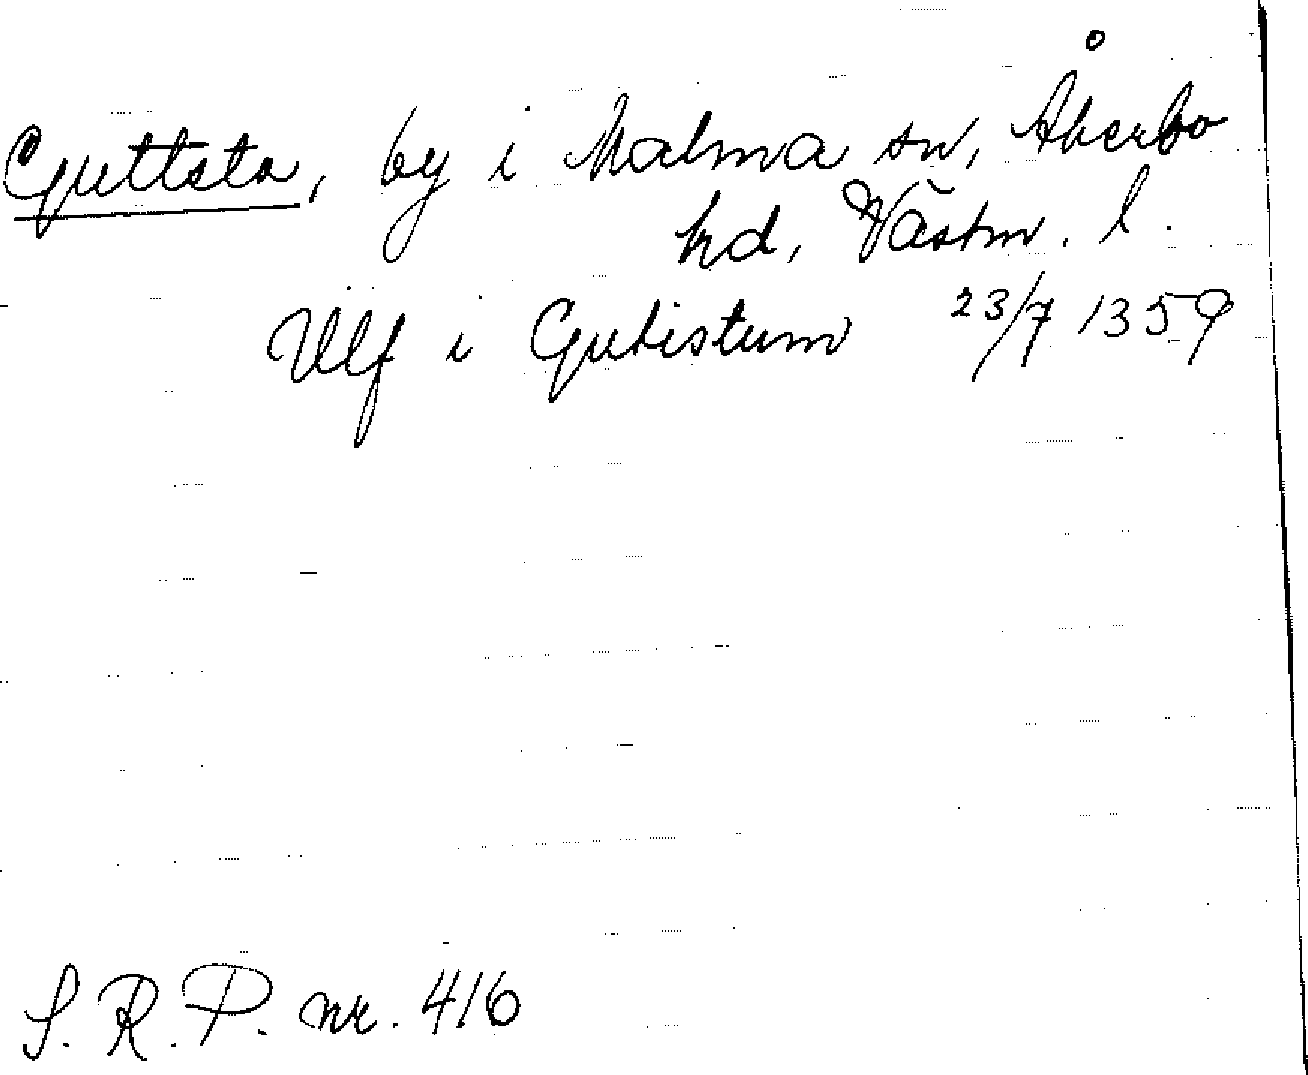 Guttsta, by i Malma sn, Åkerbo
hd, Västm. l.
Ulf i Gutistum 23/7 1359
S. R. P. nr. 416